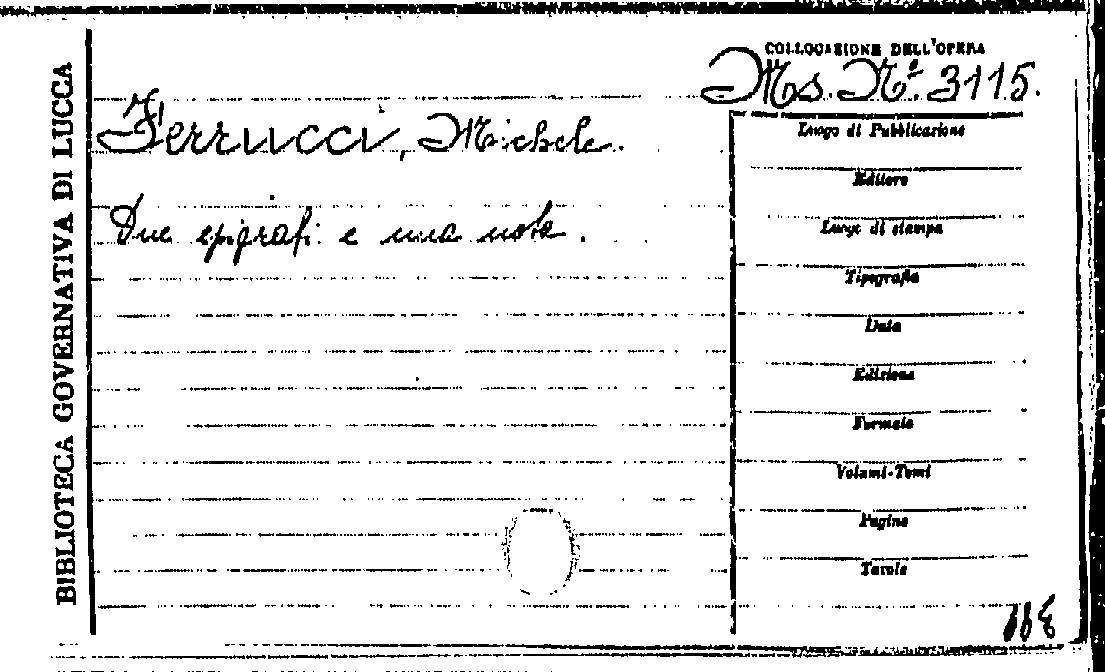 BIBLIOTECA GOVERNATIVA DI LUCCA
COLLOCAZIONE DELL'OPERA
Ms. Nº. 3115.
Ferrucci, Michele.
Due epigrafi e una nota.
Luogo di Pubblicazione
Editore
Luogo di stampa
Tipografia
Data
Edizione
Formato
Volumi-Tomi
Pagine
Tavole